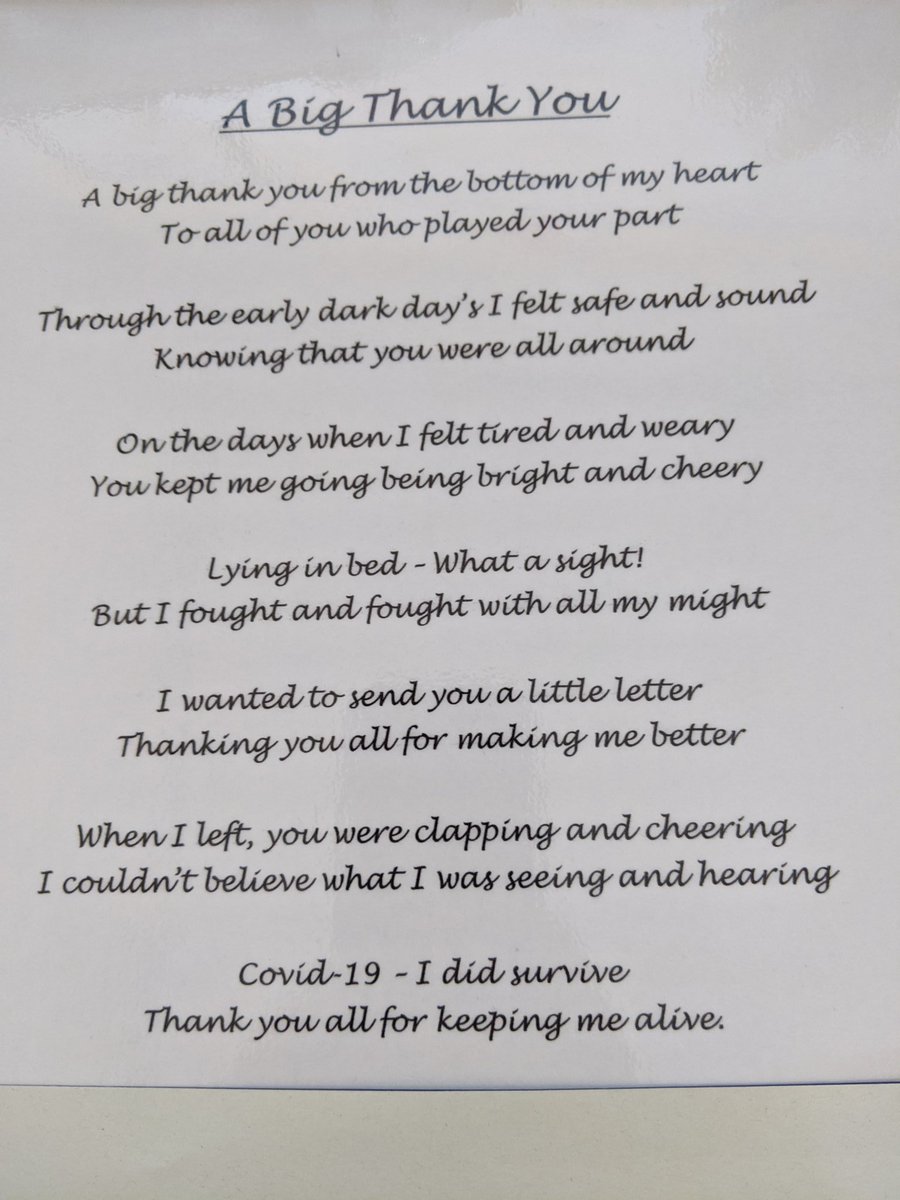 A Big Thank You
A big thank you from the bottom of my heart
To all of you who played your part
Through the early dark day's I felt safe and sound
Knowing that you were all around
On the days when I felt tired and weary
You kept me going being bright and cheery
Lying in bed - What a sight!
But I fought and fought with all my might
I wanted to send you a little letter
Thanking you all for making me better
When I left, you were clapping and cheering
I couldn't believe what I was seeing and hearing
Covid-19 - I did survive
Thank you all for keeping me alive.